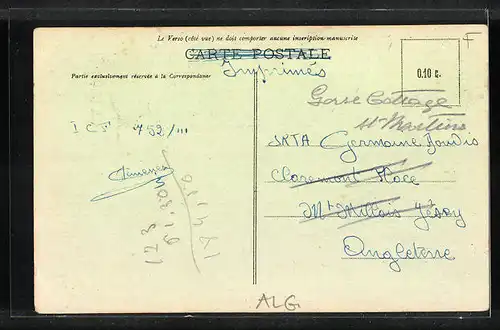 Le Verso (côté vue) ne doit comporter aucune inscription manuscrite
CARTE POSTALE
Imprimés
0.10 c.
F
Partie exclusivement réservée à la Correspondance
Gorse Cottage
St Martins
I C S 752/III
SRTA Germaine
Claremont Place
Mt Millais Jersey
Angleterre
ALG.